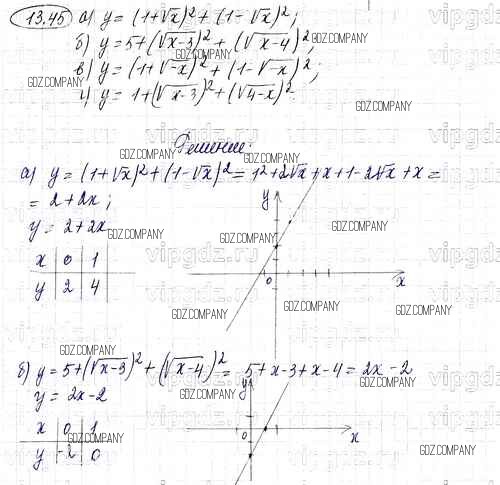 13.45 а) y = (1+√x)² + (1-√x)²;
б) y = 5+(√x-3)² + (√x-4)²;
в) y = (1+√-x)² + (1-√-x)²;
г) y = 1+(√x-3)² + (√4-x)²
Решение:
а) y = (1+√x)² + (1-√x)² = 1²+2√x+x+1-2√x+x =
= 2+2x;
y = 2+2x
x 0 1
y 2 4
y
0
x
б) y = 5+(√x-3)² + (√x-4)² = 5+x-3+x-4 = 2x-2
y = 2x-2
x 0 1
y -2 0
y
0
x
GDZ.COMPANY
vipgdz.ru